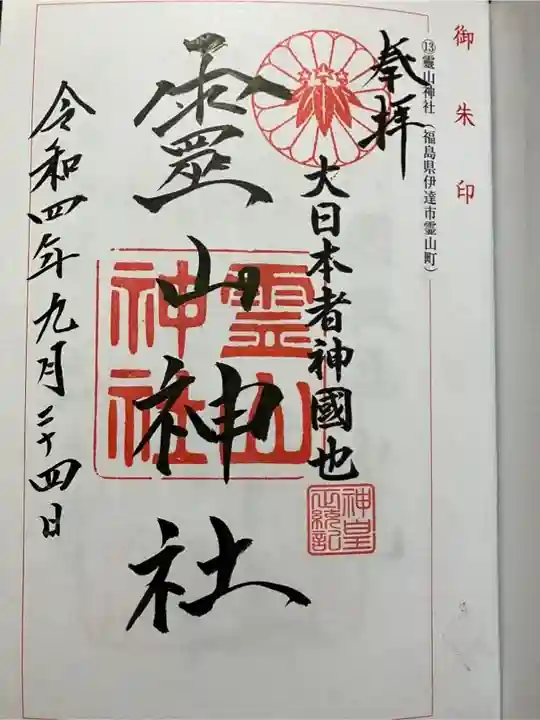 御朱印
⑬靈山神社（福島県伊達市霊山町）
奉拝
大日本者神國也
神皇
正統記
靈山神社
霊山
神社
令和四年九月二十四日